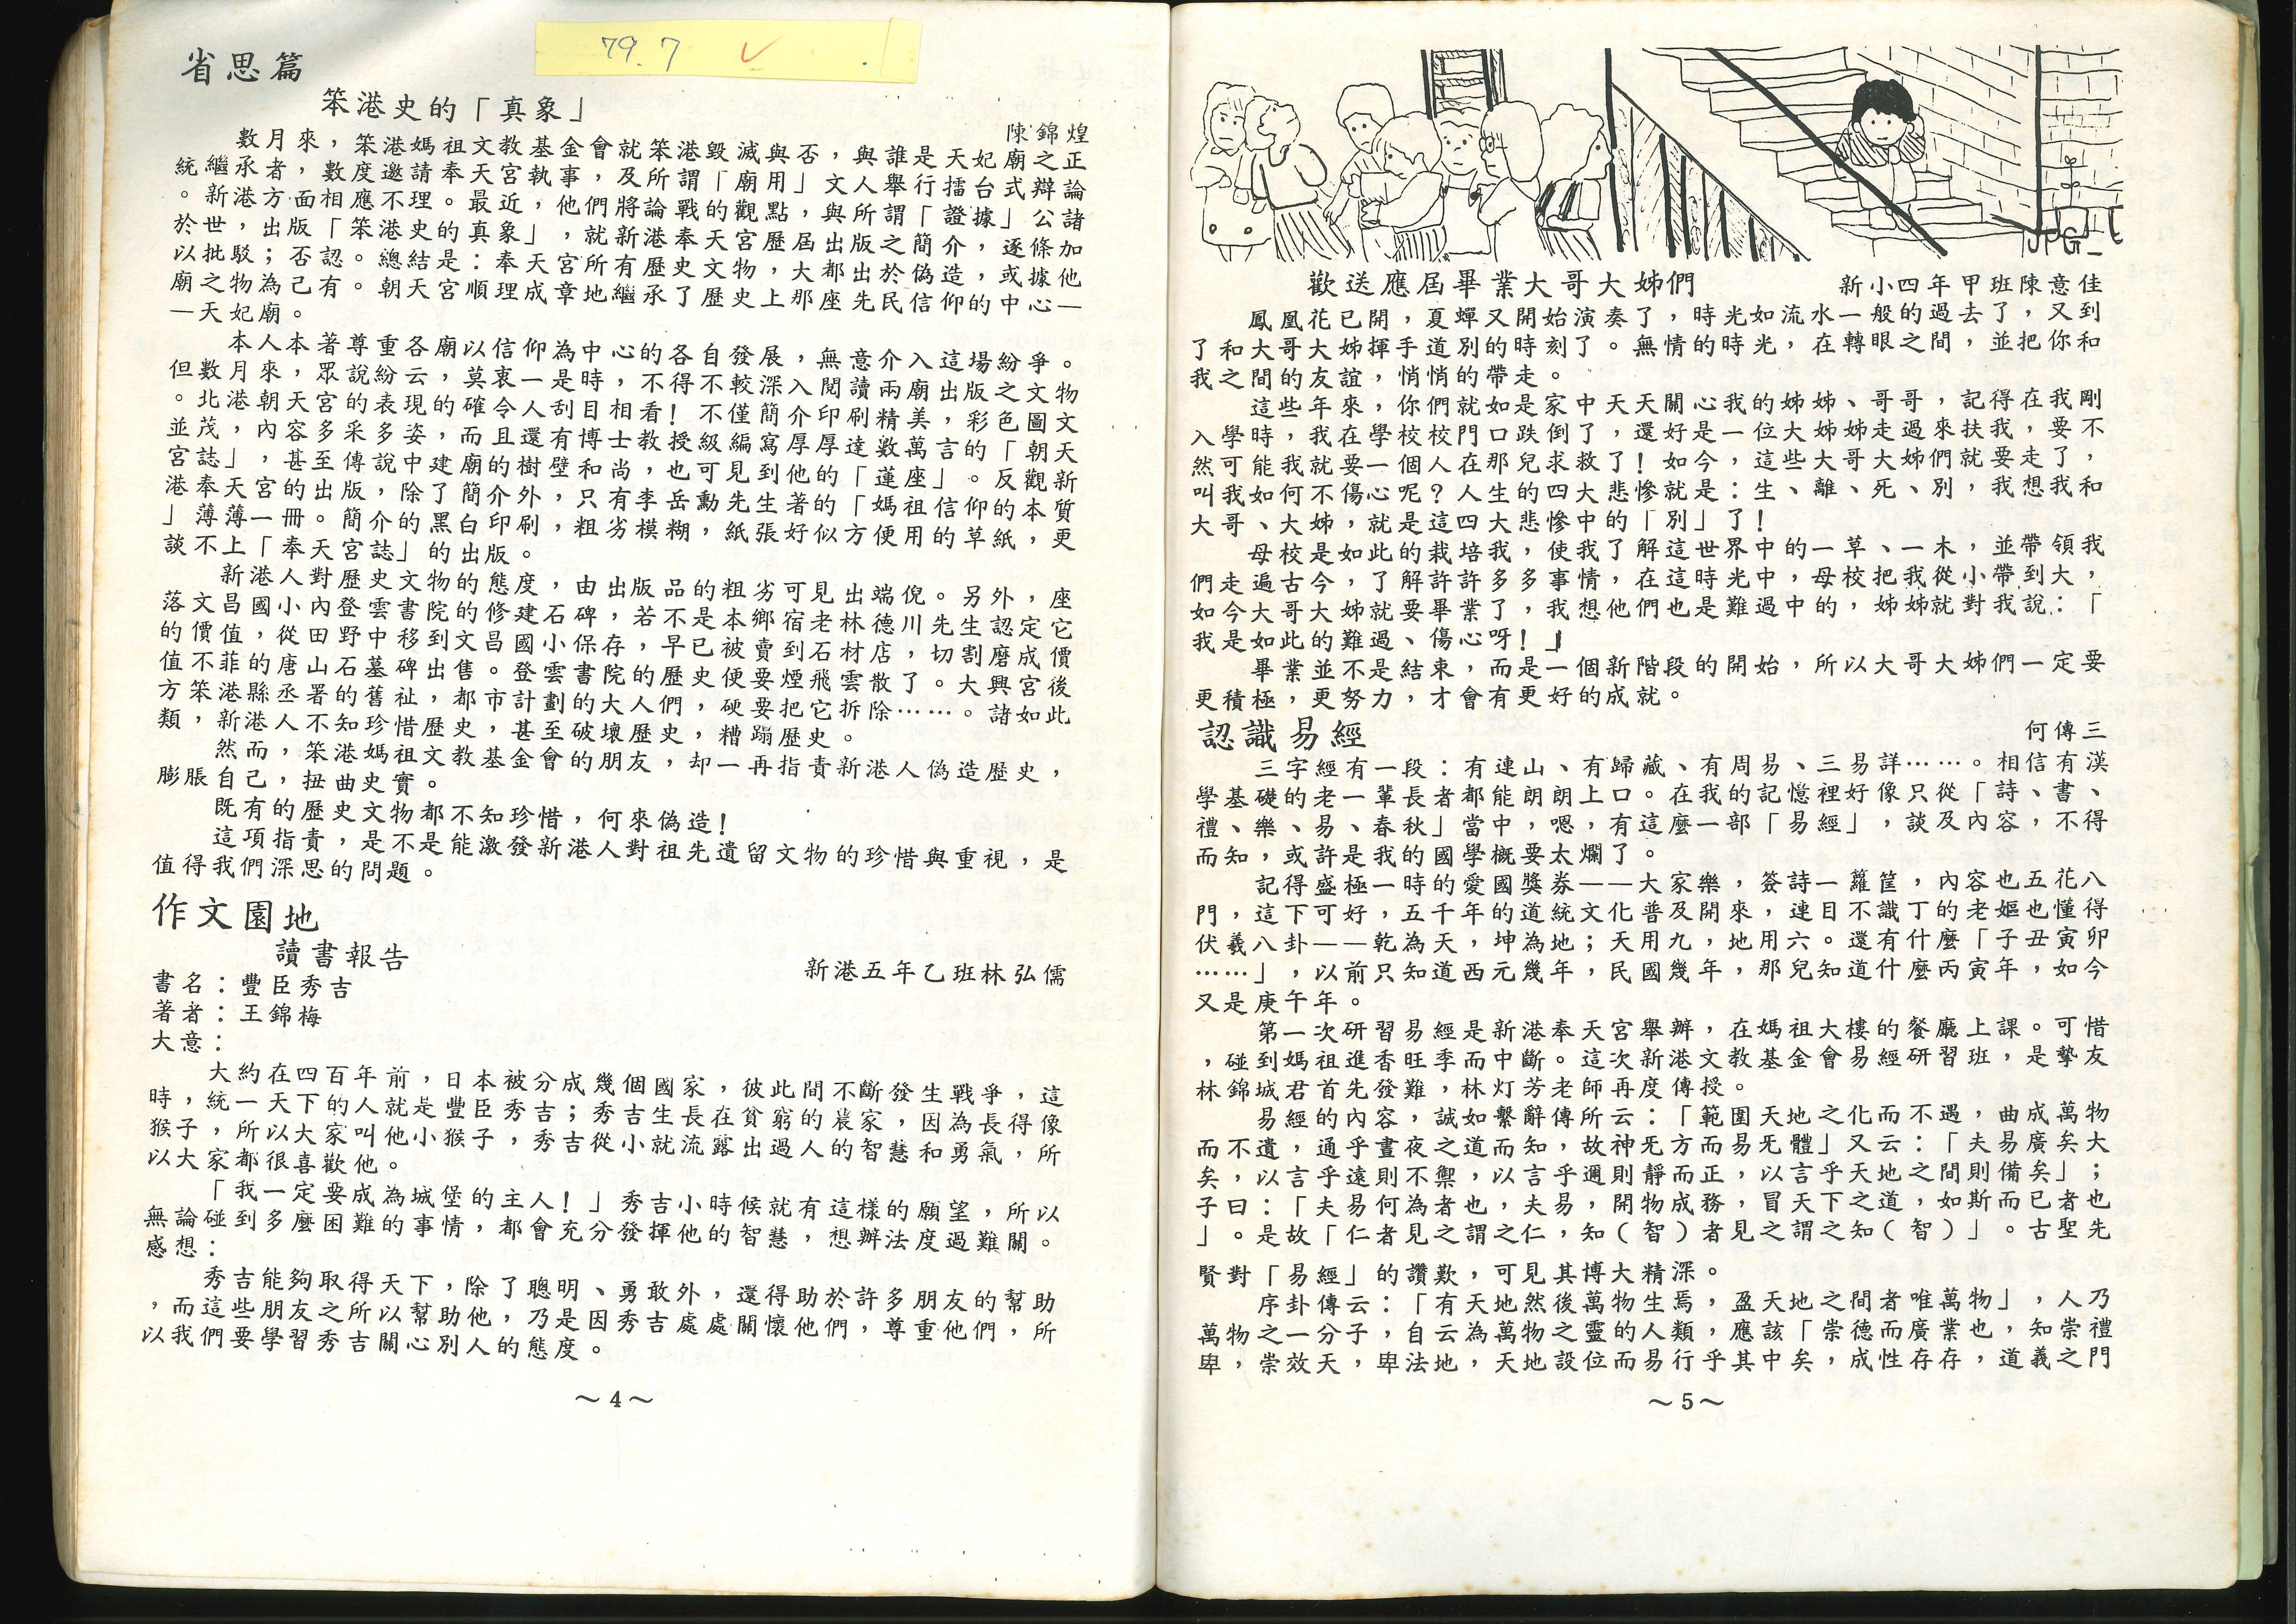 79.7
省思篇
笨港史的「真象」
陳錦煌
數月來，笨港媽祖文教基金會就笨港毀滅與否，與誰是天妃廟之正
統繼承者，數度邀請奉天宮執事，及所謂「廟用」文人舉行擂台式辯論
。新港方面相應不理。最近，他們將論戰的觀點，與所謂「證據」公諸
於世，出版「笨港史的真象」，就新港奉天宮歷屆出版之簡介，逐條加
以批駁；否認。總結是：奉天宮所有歷史文物，大都出於偽造，或據他
廟之物為己有。朝天宮順理成章地繼承了歷史上那座先民信仰的中心—
—天妃廟。
本人本著尊重各廟以信仰為中心的各自發展，無意介入這場紛爭。
但數月來，眾說紛云，莫衷一是時，不得不較深入閱讀兩廟出版之文物
。北港朝天宮的表現的確令人刮目相看！不僅簡介印刷精美，彩色圖文
並茂，內容多采多姿，而且還有博士教授級編寫厚厚達數萬言的「朝天
宮誌」，甚至傳說中建廟的樹壁和尚，也可見到他的「蓮座」。反觀新
港奉天宮的出版，除了簡介外，只有李岳勳先生著的「媽祖信仰的本質
」薄薄一冊。簡介的黑白印刷，粗劣模糊，紙張好似方便用的草紙，更
談不上「奉天宮誌」的出版。
新港人對歷史文物的態度，由出版品的粗劣可見出端倪。另外，座
落文昌國小內登雲書院的修建石碑，若不是本鄉宿老林德川先生認定它
的價值，從田野中移到文昌國小保存，早已被賣到石材店，切割磨成價
值不菲的唐山石墓碑出售。登雲書院的歷史便要煙飛雲散了。大興宮後
方笨港縣丞署的舊祉，都市計劃的大人們，硬要把它拆除……。諸如此
類，新港人不知珍惜歷史，甚至破壞歷史，糟蹋歷史。
然而，笨港媽祖文教基金會的朋友，却一再指責新港人偽造歷史，
膨脹自己，扭曲史實。
既有的歷史文物都不知珍惜，何來偽造！
這項指責，是不是能激發新港人對祖先遺留文物的珍惜與重視，是
值得我們深思的問題。
作文園地
讀書報告
新港五年乙班林弘儒
書名：豐臣秀吉
著者：王錦梅
大意：
大約在四百年前，日本被分成幾個國家，彼此間不斷發生戰爭，這
時，統一天下的人就是豐臣秀吉；秀吉生長在貧窮的農家，因為長得像
猴子，所以大家叫他小猴子，秀吉從小就流露出過人的智慧和勇氣，所
以大家都很喜歡他。
「我一定要成為城堡的主人！」秀吉小時候就有這樣的願望，所以
無論碰到多麼困難的事情，都會充分發揮他的智慧，想辦法度過難關。
感想：
秀吉能夠取得天下，除了聰明、勇敢外，還得助於許多朋友的幫助
，而這些朋友之所以幫助他，乃是因秀吉處處關懷他們，尊重他們，所
以我們要學習秀吉關心別人的態度。
～4～
JPG
歡送應屆畢業大哥大姊們
新小四年甲班陳意佳
鳳凰花已開，夏蟬又開始演奏了，時光如流水一般的過去了，又到
了和大哥大姊揮手道別的時刻了。無情的時光，在轉眼之間，並把你和
我之間的友誼，悄悄的帶走。
這些年來，你們就如是家中天天關心我的姊姊、哥哥，記得在我剛
入學時，我在學校校門口跌倒了，還好是一位大姊姊走過來扶我，要不
然可能我就要一個人在那兒求救了！如今，這些大哥大姊們就要走了，
叫我如何不傷心呢？人生的四大悲慘就是：生、離、死、別，我想我和
大哥、大姊，就是這四大悲慘中的「別」了！
母校是如此的栽培我，使我了解這世界中的一草、一木，並帶領我
們走遍古今，了解許許多多事情，在這時光中，母校把我從小帶到大，
如今大哥大姊就要畢業了，我想他們也是難過中的，姊姊就對我說：「
我是如此的難過、傷心呀！」
畢業並不是結束，而是一個新階段的開始，所以大哥大姊們一定要
更積極，更努力，才會有更好的成就。
認識易經
何傳三
三字經有一段：有連山、有歸藏、有周易、三易詳……。相信有漢
學基礎的老一輩長者都能朗朗上口。在我的記憶裡好像只從「詩、書、
禮、樂、易、春秋」當中，嗯，有這麼一部「易經」，談及內容，不得
而知，或許是我的國學概要太爛了。
記得盛極一時的愛國獎券——大家樂，簽詩一籮筐，內容也五花八
門，這下可好，五千年的道統文化普及開來，連目不識丁的老嫗也懂得
伏羲八卦——乾為天，坤為地；天用九，地用六。還有什麼「子丑寅卯
……」，以前只知道西元幾年，民國幾年，那兒知道什麼丙寅年，如今
又是庚午年。
第一次研習易經是新港奉天宮舉辦，在媽祖大樓的餐廳上課。可惜
，碰到媽祖進香旺季而中斷。這次新港文教基金會易經研習班，是摯友
林錦城君首先發難，林灯芳老師再度傳授。
易經的內容，誠如繫辭傳所云：「範圍天地之化而不遇，曲成萬物
而不遺，通乎晝夜之道而知，故神旡方而易旡體」又云：「夫易廣矣大
矣，以言乎遠則不禦，以言乎邇則靜而正，以言乎天地之間則備矣」；
子曰：「夫易何為者也，夫易，開物成務，冒天下之道，如斯而已者也
」。是故「仁者見之謂之仁，知（智）者見之謂之知（智）」。古聖先
賢對「易經」的讚歎，可見其博大精深。
序卦傳云：「有天地然後萬物生焉，盈天地之間者唯萬物」，人乃
萬物之一分子，自云為萬物之靈的人類，應該「崇德而廣業也，知崇禮
卑，崇效天，卑法地，天地設位而易行乎其中矣，成性存存，道義之門
～5～